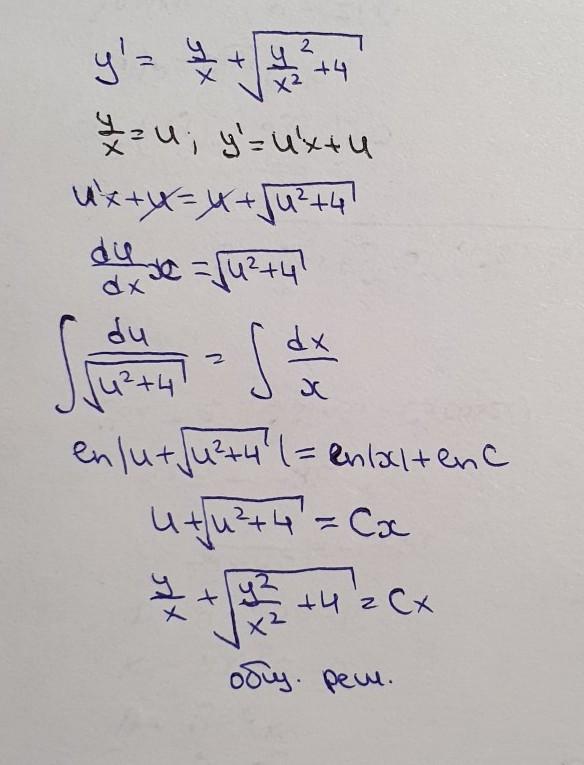 y' = y/x + √(y²/x² + 4)
y/x = u; y' = u'x + u
u'x + u = u + √(u² + 4)
du/dx x = √(u² + 4)
∫ du/√(u² + 4) = ∫ dx/x
ln|u + √(u² + 4)| = ln|x| + ln C
u + √(u² + 4) = Cx
y/x + √(y²/x² + 4) = Cx
общ. реш.